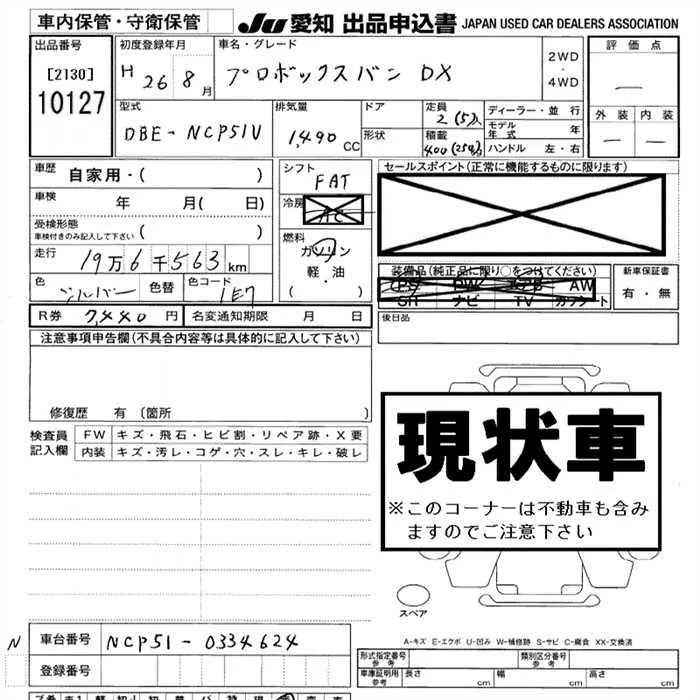 車内保管・守衛保管
JU 愛知 出品申込書 JAPAN USED CAR DEALERS ASSOCIATION
出品番号
[2130]
10127
初度登録年月
H 26 8月
車名・グレード
プロボックスバン DX
2WD
・
4WD
評価点
—
外装 内装
— —
型式
DBE-NCP51V
排気量
1,490 CC
ドア
形状
定員
2(5)人
積載
400(250)
ディーラー・並行
モデル年式 年
ハンドル 左・右
車歴 自家用・( )
車検 年 月( 日)
受検形態
車検付きのみ記入して下さい ( )
走行 19万6千563km
色 シルバー 色替 色コード 1E7
シフト
FAT
冷房
AC
燃料
ガソリン
軽・油
・( )
セールスポイント(正常に機能するものに限ります)
装備品(純正品に限り○をつけてください)
PS PW エアB AW
SR ナビ TV カワシート
新車保証書
有・無
R券 7,440円 名変通知期限 月 日
後日品
注意事項申告欄(不具合内容等は具体的に記入して下さい)
修復歴 有 〔箇所 〕
検査員記入欄
FW キズ・飛石・ヒビ割・リペア跡・X要
内装 キズ・汚レ・コゲ・穴・スレ・キレ・破レ
現状車
※このコーナーは不動車も含み
ますのでご注意下さい
スペア
A-キズ E-エクボ U-凹み W-補修跡 S-サビ C-腐食 XX-交換済
N 車台番号 NCP51-0334624
登録番号
形式指定番号 参考 類別区分番号 参考
車庫証明用 参考 長さ cm 幅 cm 高さ cm